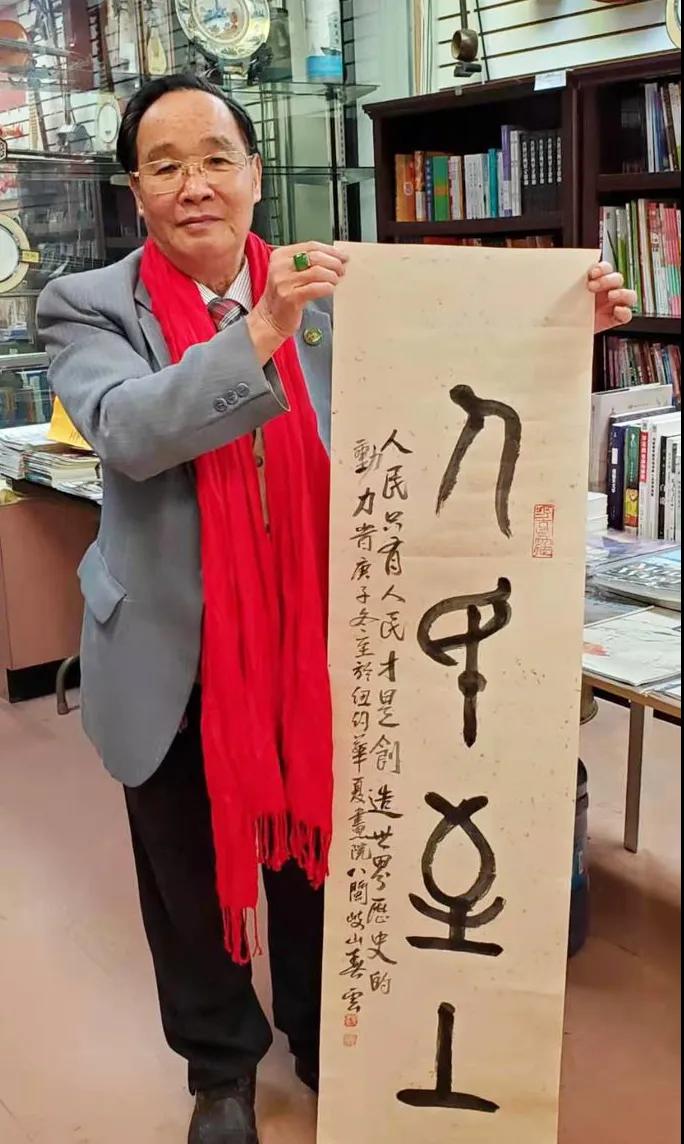 人民至上
人民只有人民才是創造世界歷史的
動力旹庚子冬至於紐約華夏畫院八閩岐山春雲